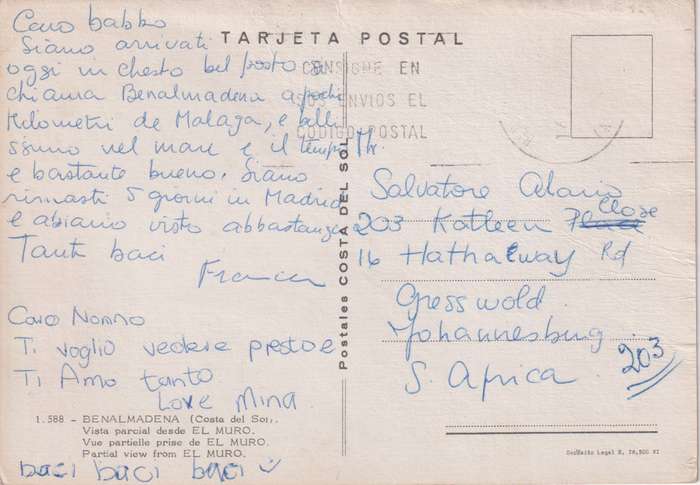 TARJETA POSTAL
Caro babbo
Siamo arrivati
oggi in chesto bel posto si
chiama Benalmadena a pochi
Kilometri de Malaga, e belli
ssimo nel mare e il tempo
e bastante bueno. Siamo
rimasti 5 giorni in Madrid
e abiamo visto abbastanza
Tanti baci
Franca
Caro Nonno
Ti voglio vedere presto e
Ti Amo tanto
Love Mina
1.588 - BENALMADENA (Costa del Sol).
Vista parcial desde EL MURO.
Vue partielle prise de EL MURO.
Partial view from EL MURO.
baci baci baci
Postales COSTA DEL SOL
CONSIGNE EN
SUS ENVIOS EL
CODIGO POSTAL
Mr.
Salvatore Alario
203 Katleen Close
16 Hathaway Rd
Gresswold
Johannesburg
S. Africa
203
Depósito Legal B. 78,500 XI